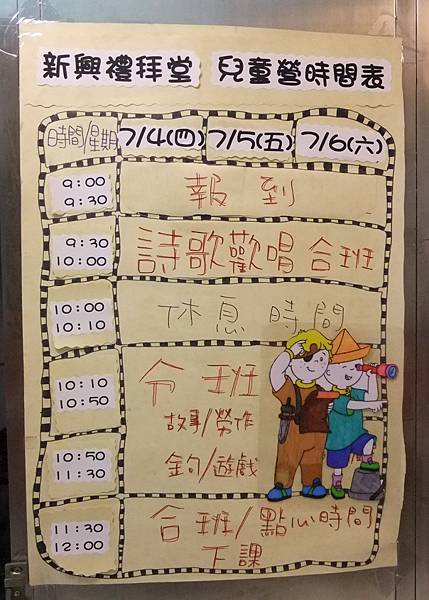 新興禮拜堂 兒童營時間表
時間/星期 7/4(四) 7/5(五) 7/6(六)
9:00
9:30
報到
9:30
10:00
詩歌歡唱 合班
10:00
10:10
休息時間
10:10
10:50
班
故事/勞作
10:50
11:30
/遊戲
11:30
12:00
合班/點心時間
下課